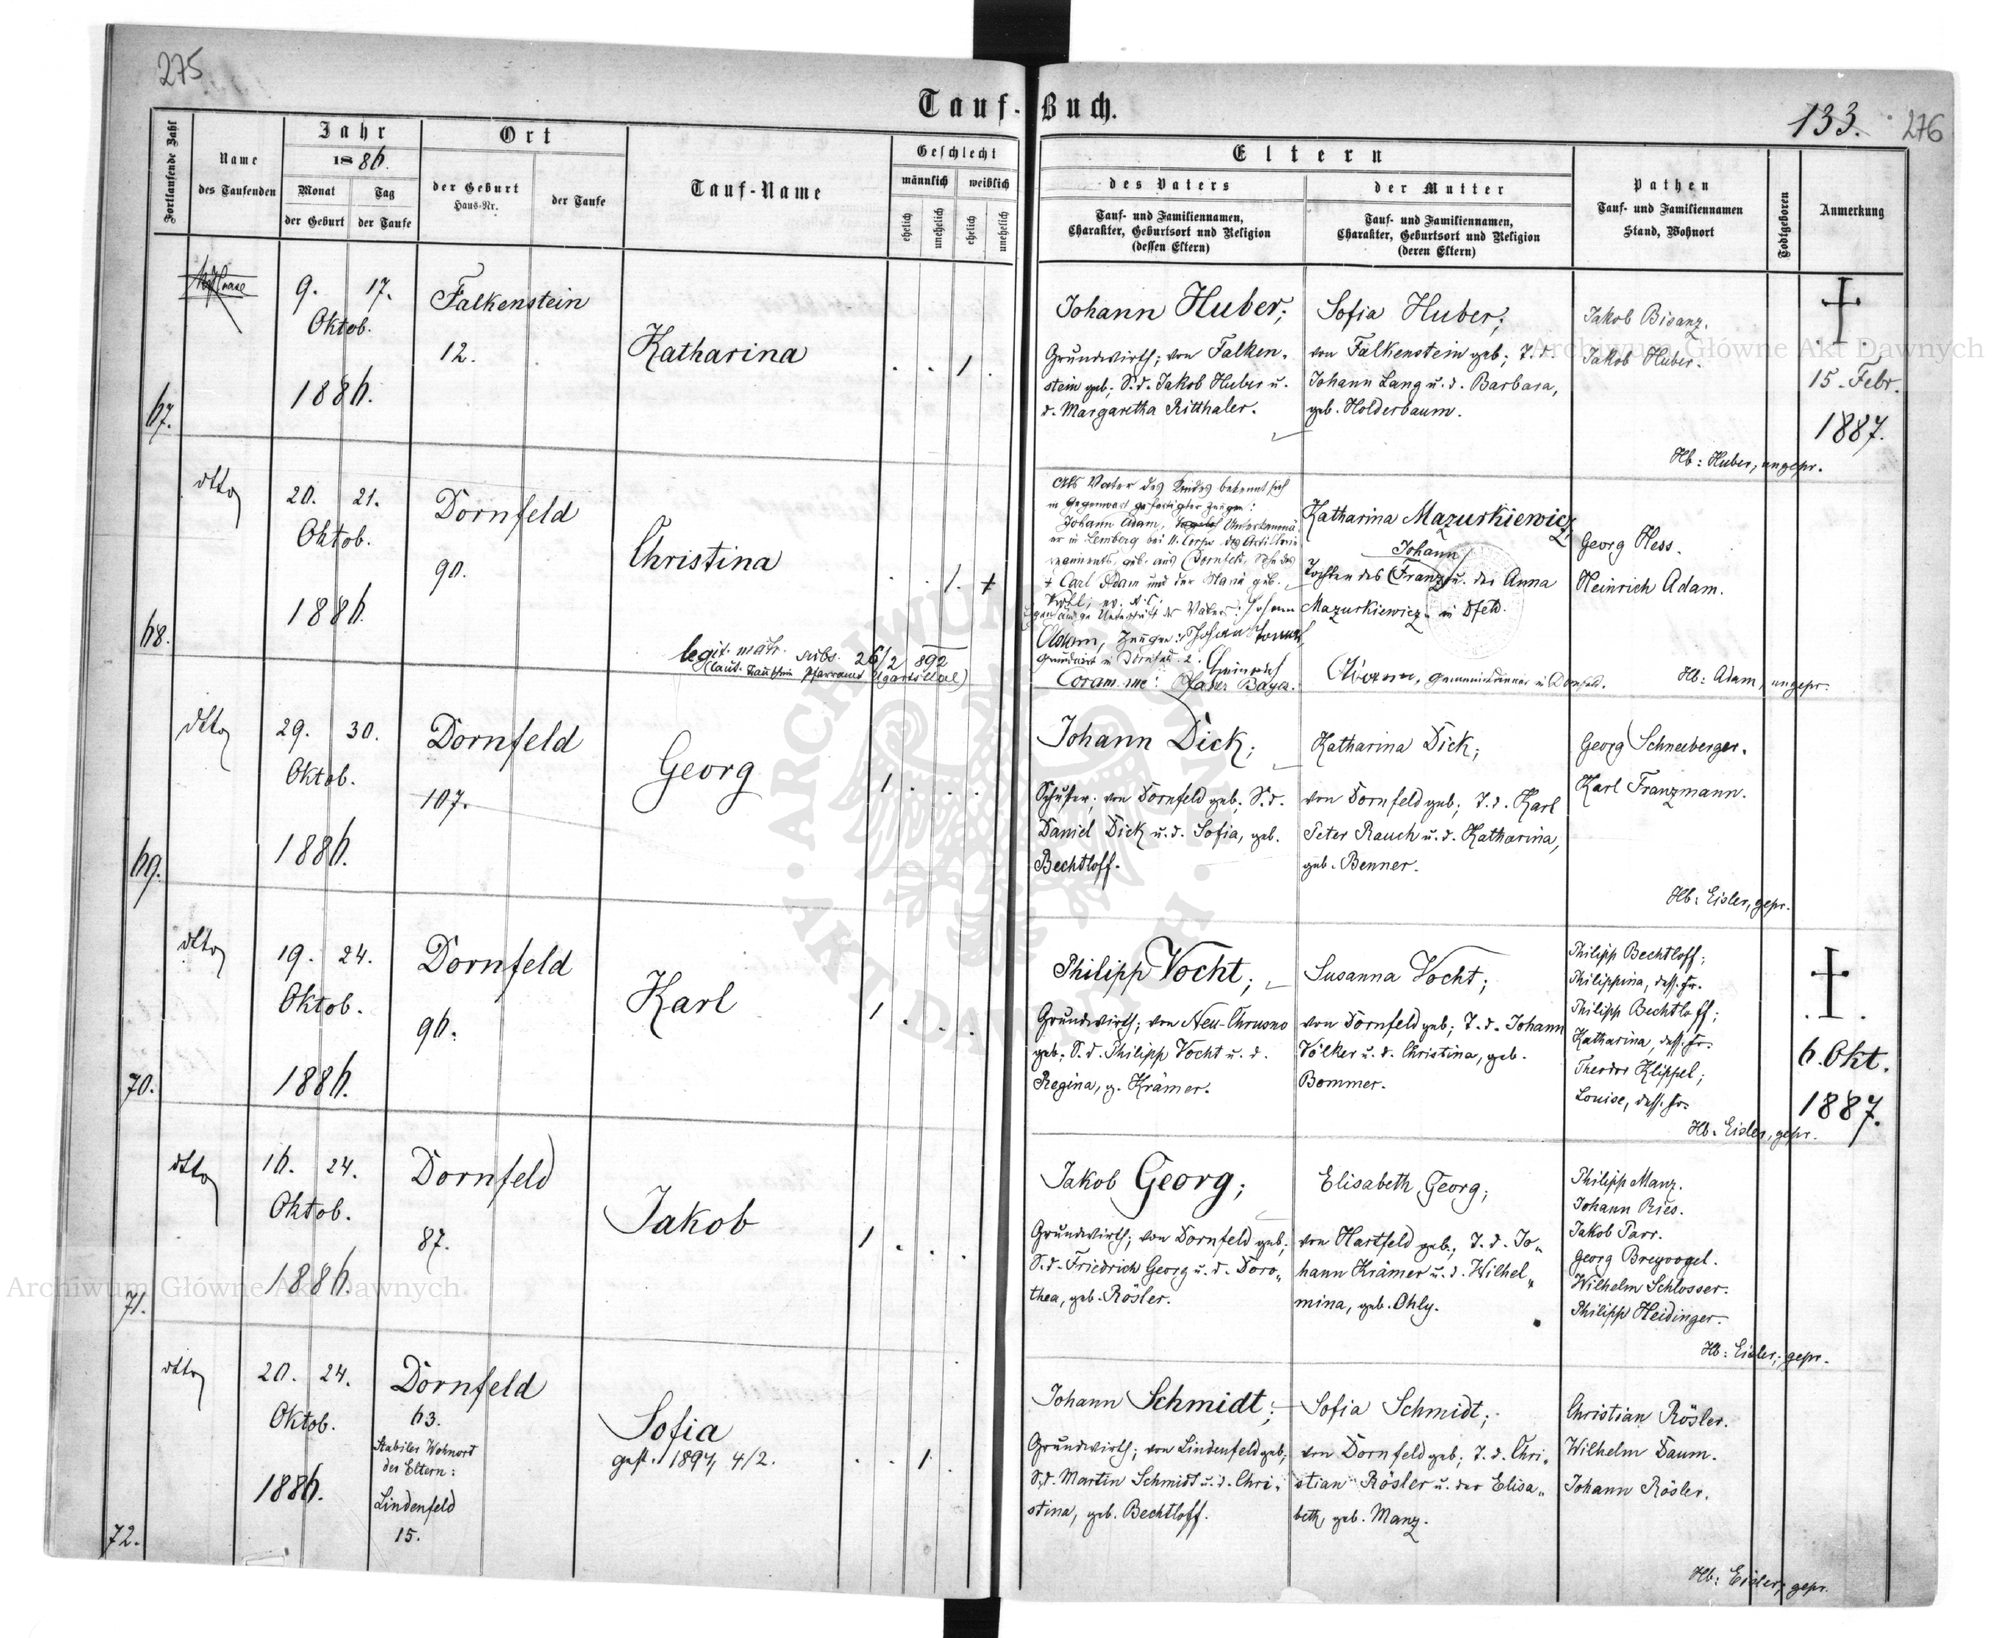 275
Tauf-Buch.
133. 276
Fortlaufende Zahl
Name
des Taufenden
Jahr
1886.
Monat
der Geburt
Tag
der Taufe
Ort
der Geburt
Haus-Nr.
der Taufe
Tauf-Name
Geschlecht
männlich weiblich
ehelich unehelich ehelich unehelich
Eltern
des Vaters
Tauf- und Familiennamen,
Charakter, Geburtsort und Religion
(dessen Eltern)
der Mutter
Tauf- und Familiennamen,
Charakter, Geburtsort und Religion
(deren Eltern)
Pathen
Tauf- und Familiennamen
Stand, Wohnort
Todtgeboren
Anmerkung
67.
9. 17.
Oktob.
1886.
Falkenstein
12.
Katharina
. . 1 .
Johann Huber;
Grundwirth; von Falken-
stein geb; S. d. Jakob Huber u.
d. Margaretha Ritthaler.
Sofia Huber;
von Falkenstein geb; T. d.
Johann Lang u. d. Barbara,
geb. Holderbaum.
Jakob Bisanz.
Jakob Huber.
Hb: Huber, ungepr.
15. Febr.
1887.
68.
dtto
20. 21.
Oktob.
1886.
Dornfeld
90.
Christina
. . 1. +
legit. matr. subs. 26/2 892
Als Vater des Kindes bekennt sich
in Gegenwart gefertigter Zeugen:
Johann Adam,
in Lemberg bei 11. Corps des Artillerie
regiments, geb. aus Dornfeld, Sohn des
+ Carl Adam und der Maria geb.
Adam, Zeugen: Johann
Grundwirt in Dornfeld. 2. Heinrich
Coram me: Pfarrer Bayer.
Katharina Mazurkiewicz,
Johann
Tochter des Franz u. der Anna
Mazurkiewicz in Dfeld.
Adam, Gemeindediener in Dornfeld.
Georg Hess.
Heinrich Adam.
Hb: Adam, ungepr.
69.
dtto
29. 30.
Oktob.
1886.
Dornfeld
107.
Georg
1 . . .
Johann Dick;
Schuster; von Dornfeld geb; S. d.
Daniel Dick u. d. Sofia, geb.
Bechtloff.
Katharina Dick;
von Dornfeld geb; T. d. Karl
Peter Rauch u. d. Katharina,
geb. Benner.
Georg Schneeberger.
Karl Franzmann.
Hb: Eisler, gepr.
70.
dtto
19. 24.
Oktob.
1886.
Dornfeld
96.
Karl
1 . . .
Philipp Vocht;
Grundwirth; von Neu-Chrusno
geb; S. d. Philipp Vocht u. d.
Regina, g. Krämer.
Susanna Vocht;
von Dornfeld geb; T. d. Johann
Völker u. d. Christina, geb.
Bommer.
Philipp Bechtloff;
Philippina, dess. Fr.
Philipp Bechtloff;
Katharina, dess. Fr.
Theodor Klippel;
Louise, dess. Fr.
Hb. Eisler, gepr.
6. Okt.
1887.
71.
dtto
16. 24.
Oktob.
1886.
Dornfeld
87.
Jakob
1 . . .
Jakob Georg;
Grundwirth; von Dornfeld geb;
S. d. Friedrich Georg u. d. Doro„
thea, geb. Rösler.
Elisabeth Georg;
von Hartfeld geb; T. d. Jo„
hann Krämer u. d. Wilhel„
mina, geb. Ohly.
Philipp Manz.
Johann Ries.
Jakob Parr.
Georg Breyvogel.
Wilhelm Schlosser.
Philipp Heidinger.
Hb: Eisler; gepr.
72.
dtto
20. 24.
Oktob.
1886.
Dornfeld
63.
Stabiler Wohnort
der Eltern:
Lindenfeld
15.
Sofia
gest. 1894, 4/2.
. . 1 .
Johann Schmidt;
Grundwirth; von Lindenfeld geb;
S. d. Martin Schmidt u. d. Chri„
stina, geb. Bechtloff.
Sofia Schmidt;
von Dornfeld geb; T. d. Chri„
stian Rösler u. der Elisa„
beth, geb. Manz.
Christian Rösler.
Wilhelm Daum.
Johann Rösler.
Hb: Eisler; gepr.
Archiwum Główne Akt Dawnych
Archiwum Główne Akt Dawnych
ARCHIWUM GŁÓWNE AKT DAWNYCH